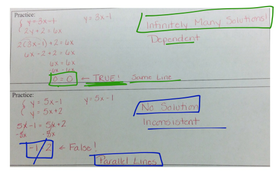 Practice:
y = 3x-1
y = 3x-1
2y + 2 = 6x
2(3x-1) + 2 = 6x
6x - 2 + 2 = 6x
6x = 6x
0 = 0 ← TRUE! Same Line
Infinitely Many Solutions!
Dependent
Practice:
y = 5x-1
y = 5x-1
y = 5x+2
5x-1 = 5x+2
-1 2 ← False!
Parallel Lines
No Solution
Inconsistent